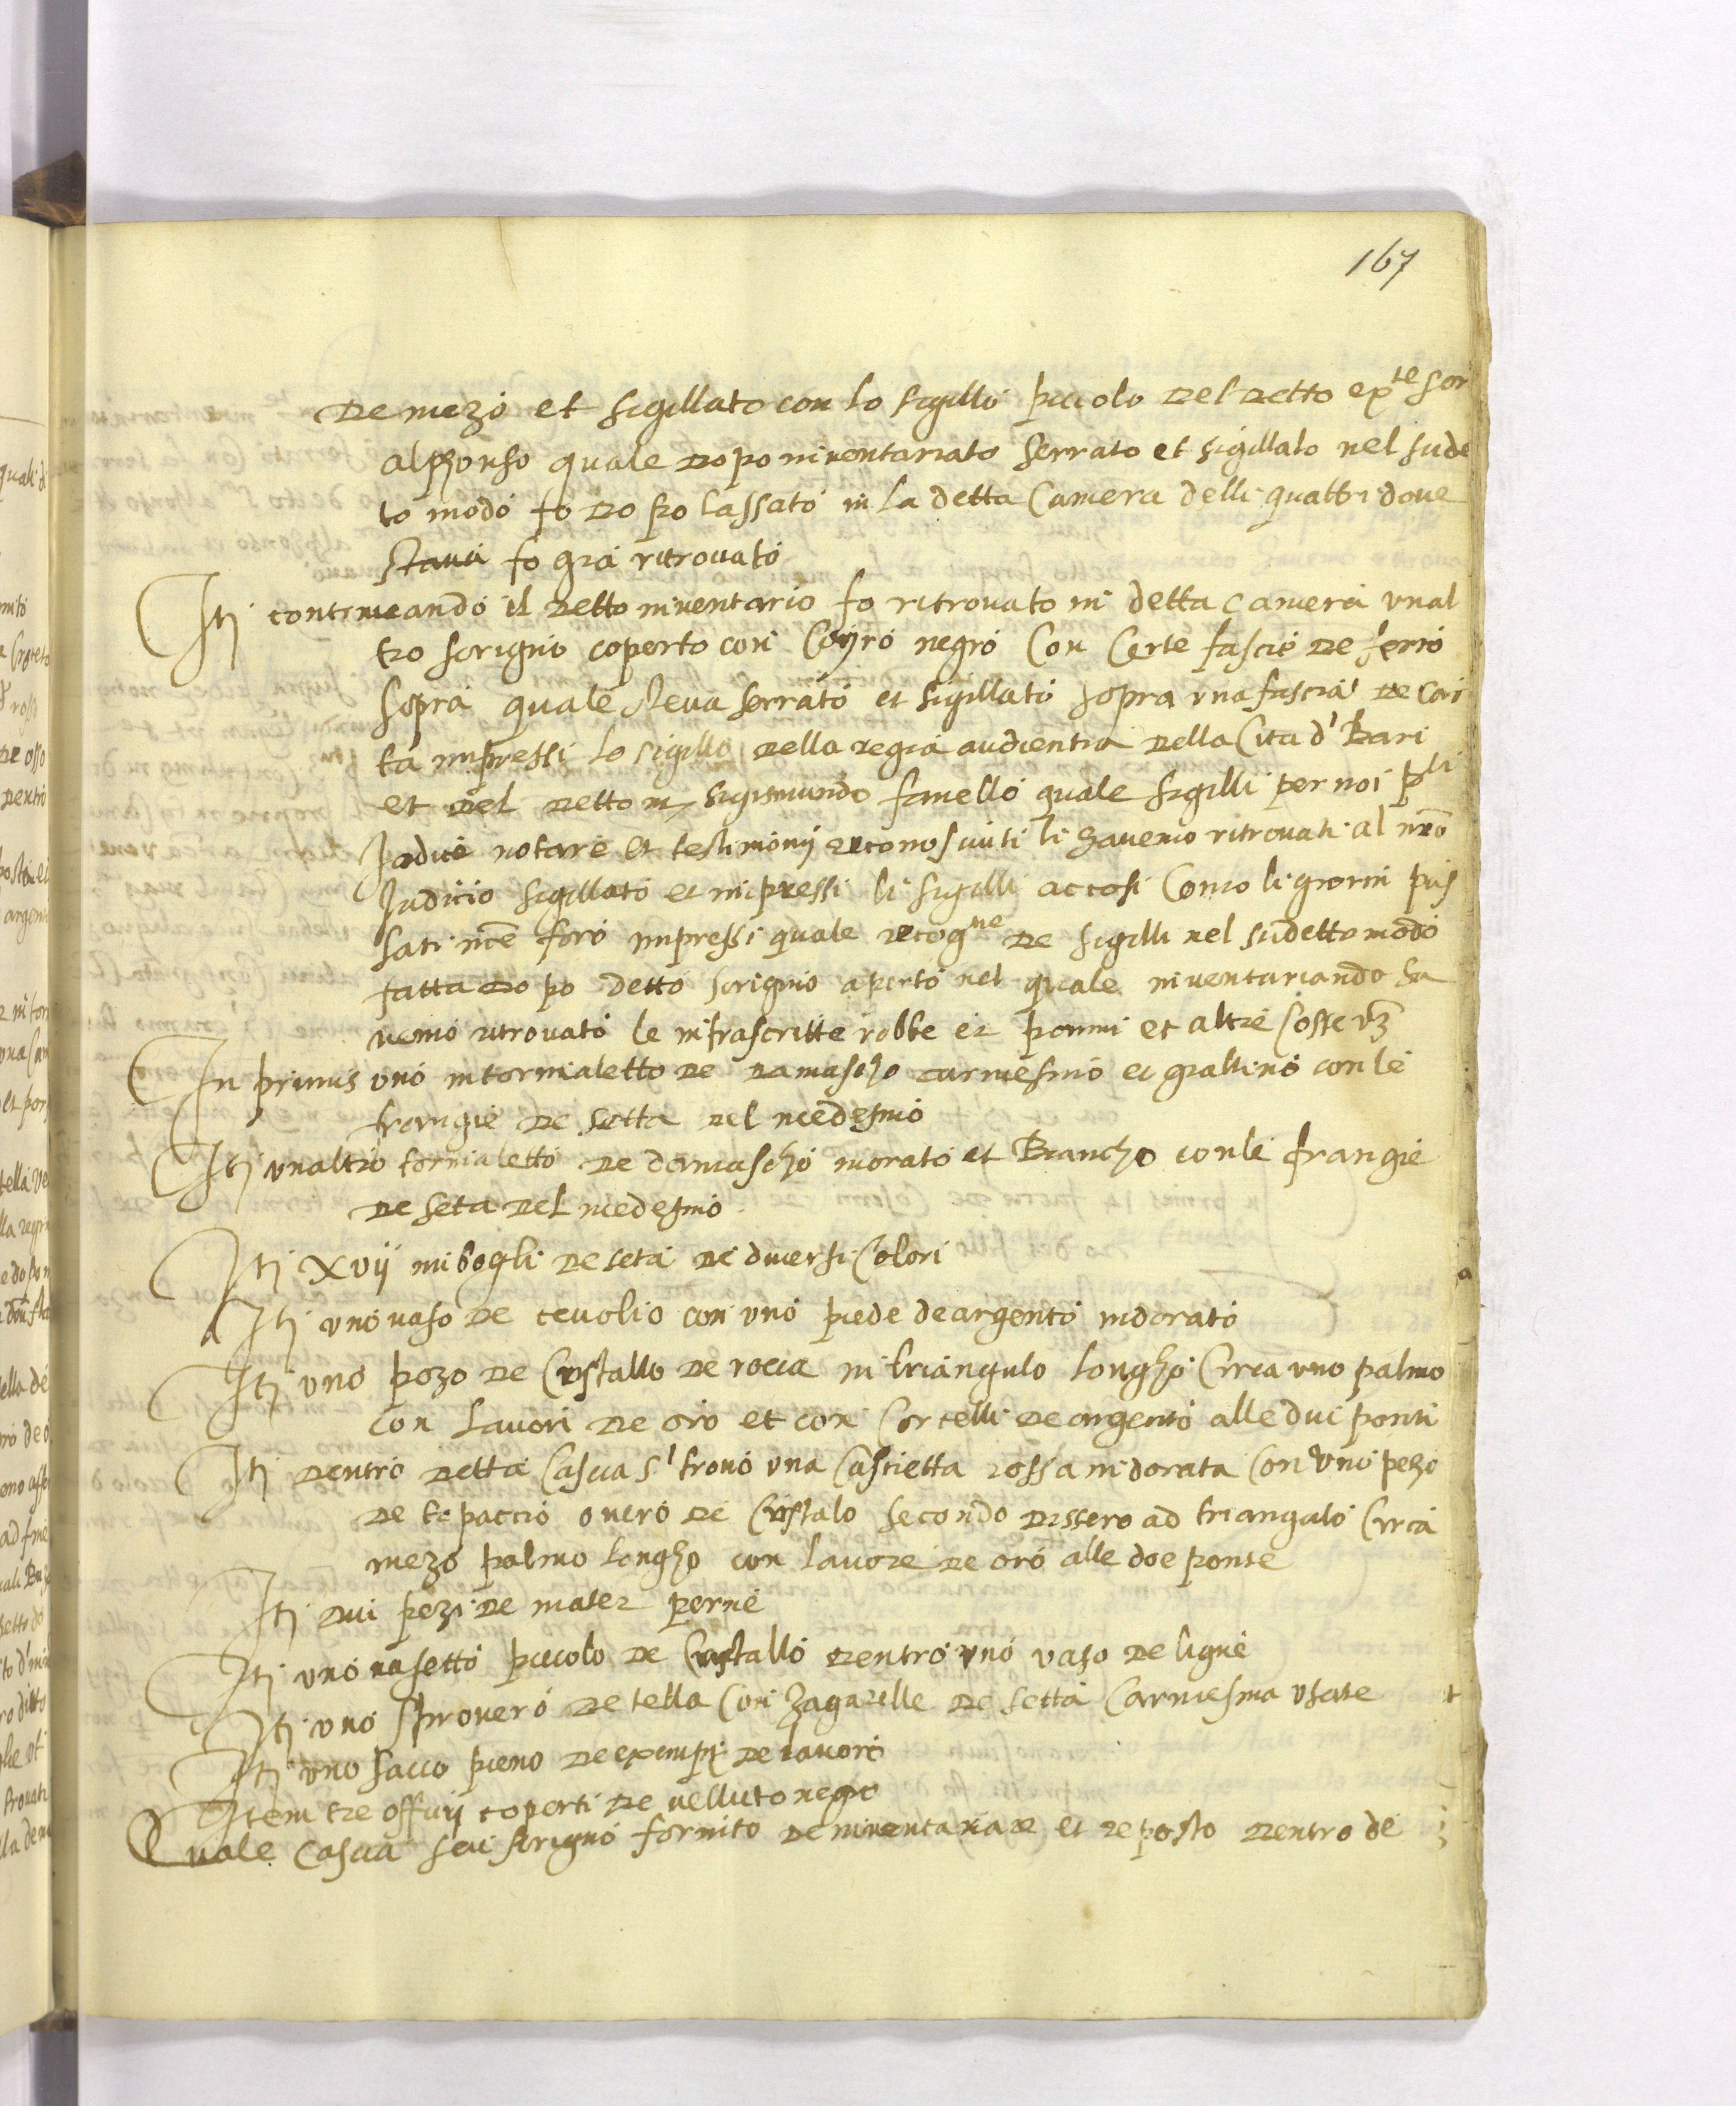 167
de mezo et sigillato con lo sigillo piccolo del detto ex.te sor
alfonso quale dopo inventariato serrato et sigillato nel sude
to modo fo dopo lassato in la detta Camera delli quattri dove
stava fo già ritrovato
Itj continuando il detto inventario fo ritrovato in detta camera unal
tro scrigno coperto con Coyro negro Con Certe fascie de ferro
sopra quale steva serrato et sigillato sopra una fascia de Car
ta impressi lo sigillo della regia audientia della Cita d' Bari
et del detto m. sigismundo fanello quale sigilli per noi p.ti
Iudice notare et testimonij reconosciuti li havemo ritrovati al nro
Iudicio sigillato et impressi li sigilli accosi Como li giorni pas
sati foro impressi quale recog.ne de sigilli nel sudetto modo
fatta dopo detto scrigno aperto nel quale inventariando ha
vemo ritrovato le infrascritte robbe et panni et altre Cosse vz
In primis uno intornialetto de damascho carmesino et giallino con le
frangie de setta del medesmo
Itj unaltro tornialetto de damascho morato et Biancho con le frangie
de seta del medesmo
Itj xvij mibogli de seta de diversi Colori
Itj uno vaso de cevolio con uno piede de argento indorato
Itj uno pezo de Cristallo de rocca in triangulo longho Circa uno palmo
con lavori de oro et con Cortelli de argento alle dui ponti
Itj dentro detta Cascia s' trovò una Cascietta rossa indorata Con uno pezo
de topaccio overo de Cristalo secondo dissero ad triangalo Circa
mezo palmo longho con lavore de oro alle doe ponte
Itj dui pezi de mater perne
Itj uno vasetto piccolo de Cristallo dentro uno vaso de ligne
Itj uno sproverò de tella Con zagarelle de setta Carmesina usate
Itj uno sacco pieno de exempij de lavoro
Item tre officij coperti de velluto negro
Quale cascia seu scrigno fornito de inventariare et reposto dentro de